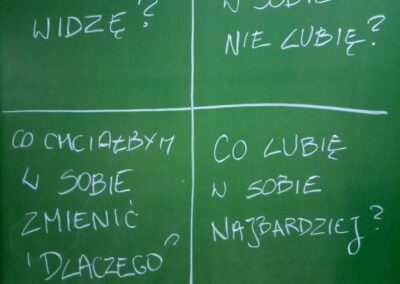 WIDZĘ?
W SOBIE
NIE LUBIĘ?
CO CHCIAŁBYM
W SOBIE
ZMIENIĆ
I DLACZEGO?
CO LUBIĘ
W SOBIE
NAJBARDZIEJ?